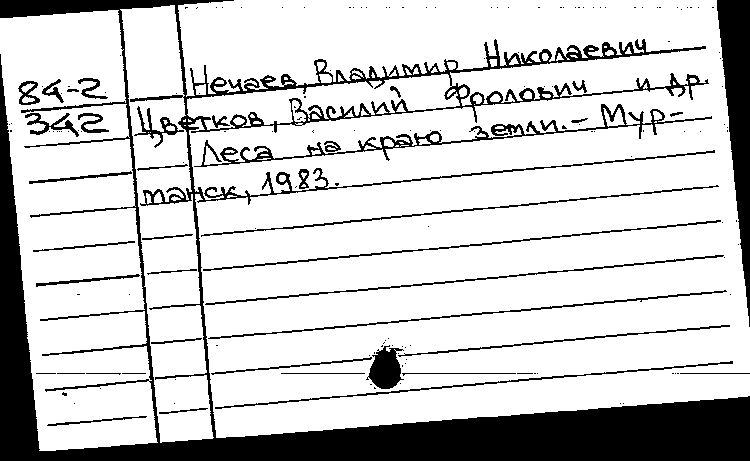 Нечаев, Владимир Николаевич
84-2
342
Цветков, Василий Фролович и др.
Леса на краю земли. - Мур-
манск, 1983.